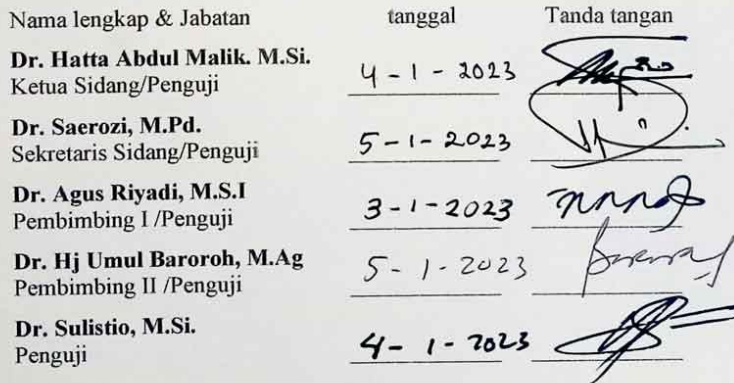 Nama lengkap & Jabatan tanggal Tanda tangan
Dr. Hatta Abdul Malik. M.Si.
Ketua Sidang/Penguji 4 - 1 - 2023
Dr. Saerozi, M.Pd.
Sekretaris Sidang/Penguji 5 - 1 - 2023
Dr. Agus Riyadi, M.S.I
Pembimbing I /Penguji 3 - 1 - 2023
Dr. Hj Umul Baroroh, M.Ag
Pembimbing II /Penguji 5 - 1 - 2023
Dr. Sulistio, M.Si.
Penguji 4 - 1 - 2023